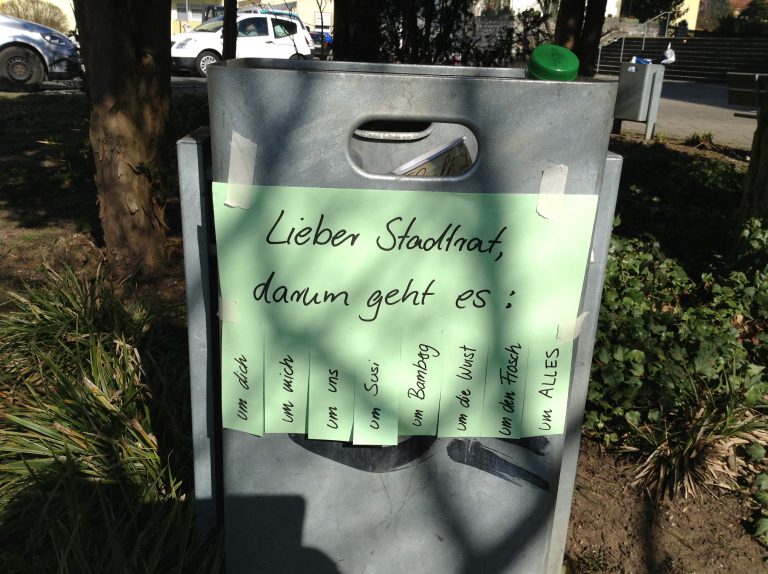 Lieber Stadtrat,
darum geht es:
um dich
um mich
um uns
um Susi
um Bamberg
um die Wurst
um den Frosch
um ALLES